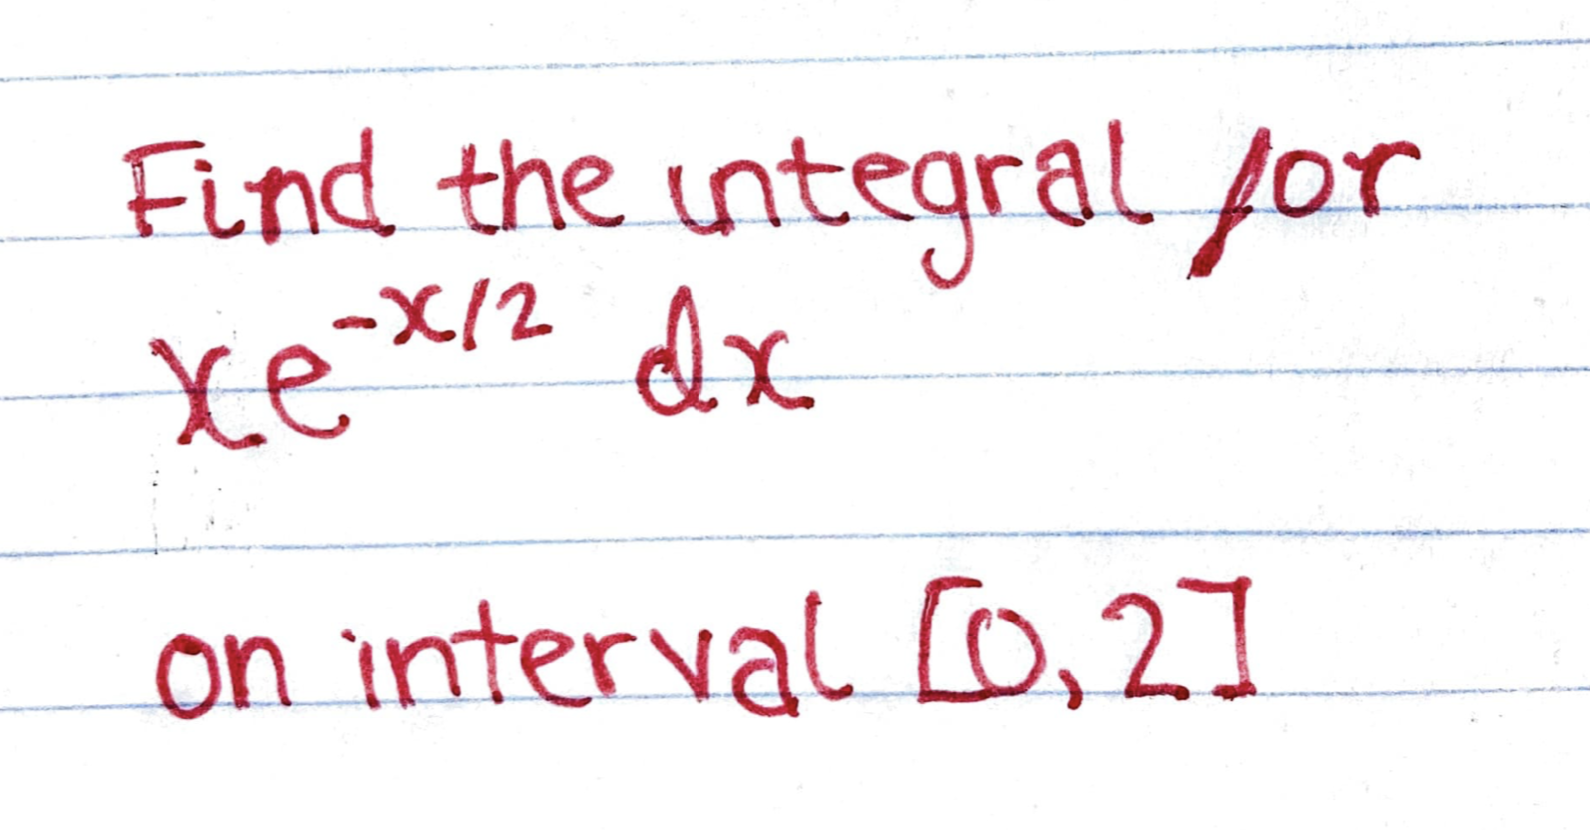 Find the integral for
xe^{-x/2} dx
on interval [0,2]